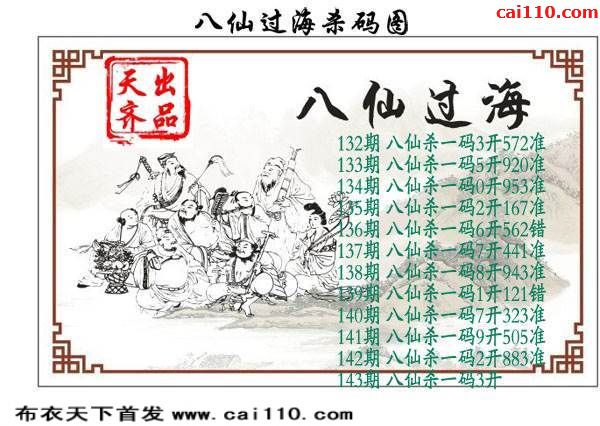 cai110.com
八仙过海杀码图
天出
齐品
八仙过海
132期 八仙杀一码3开572准
133期 八仙杀一码5开920准
134期 八仙杀一码0开953准
135期 八仙杀一码2开167准
136期 八仙杀一码6开562错
137期 八仙杀一码7开441准
138期 八仙杀一码8开943准
139期 八仙杀一码1开121错
140期 八仙杀一码7开323准
141期 八仙杀一码9开505准
142期 八仙杀一码2开883准
143期 八仙杀一码3开
布衣天下首发 www.cai110.com